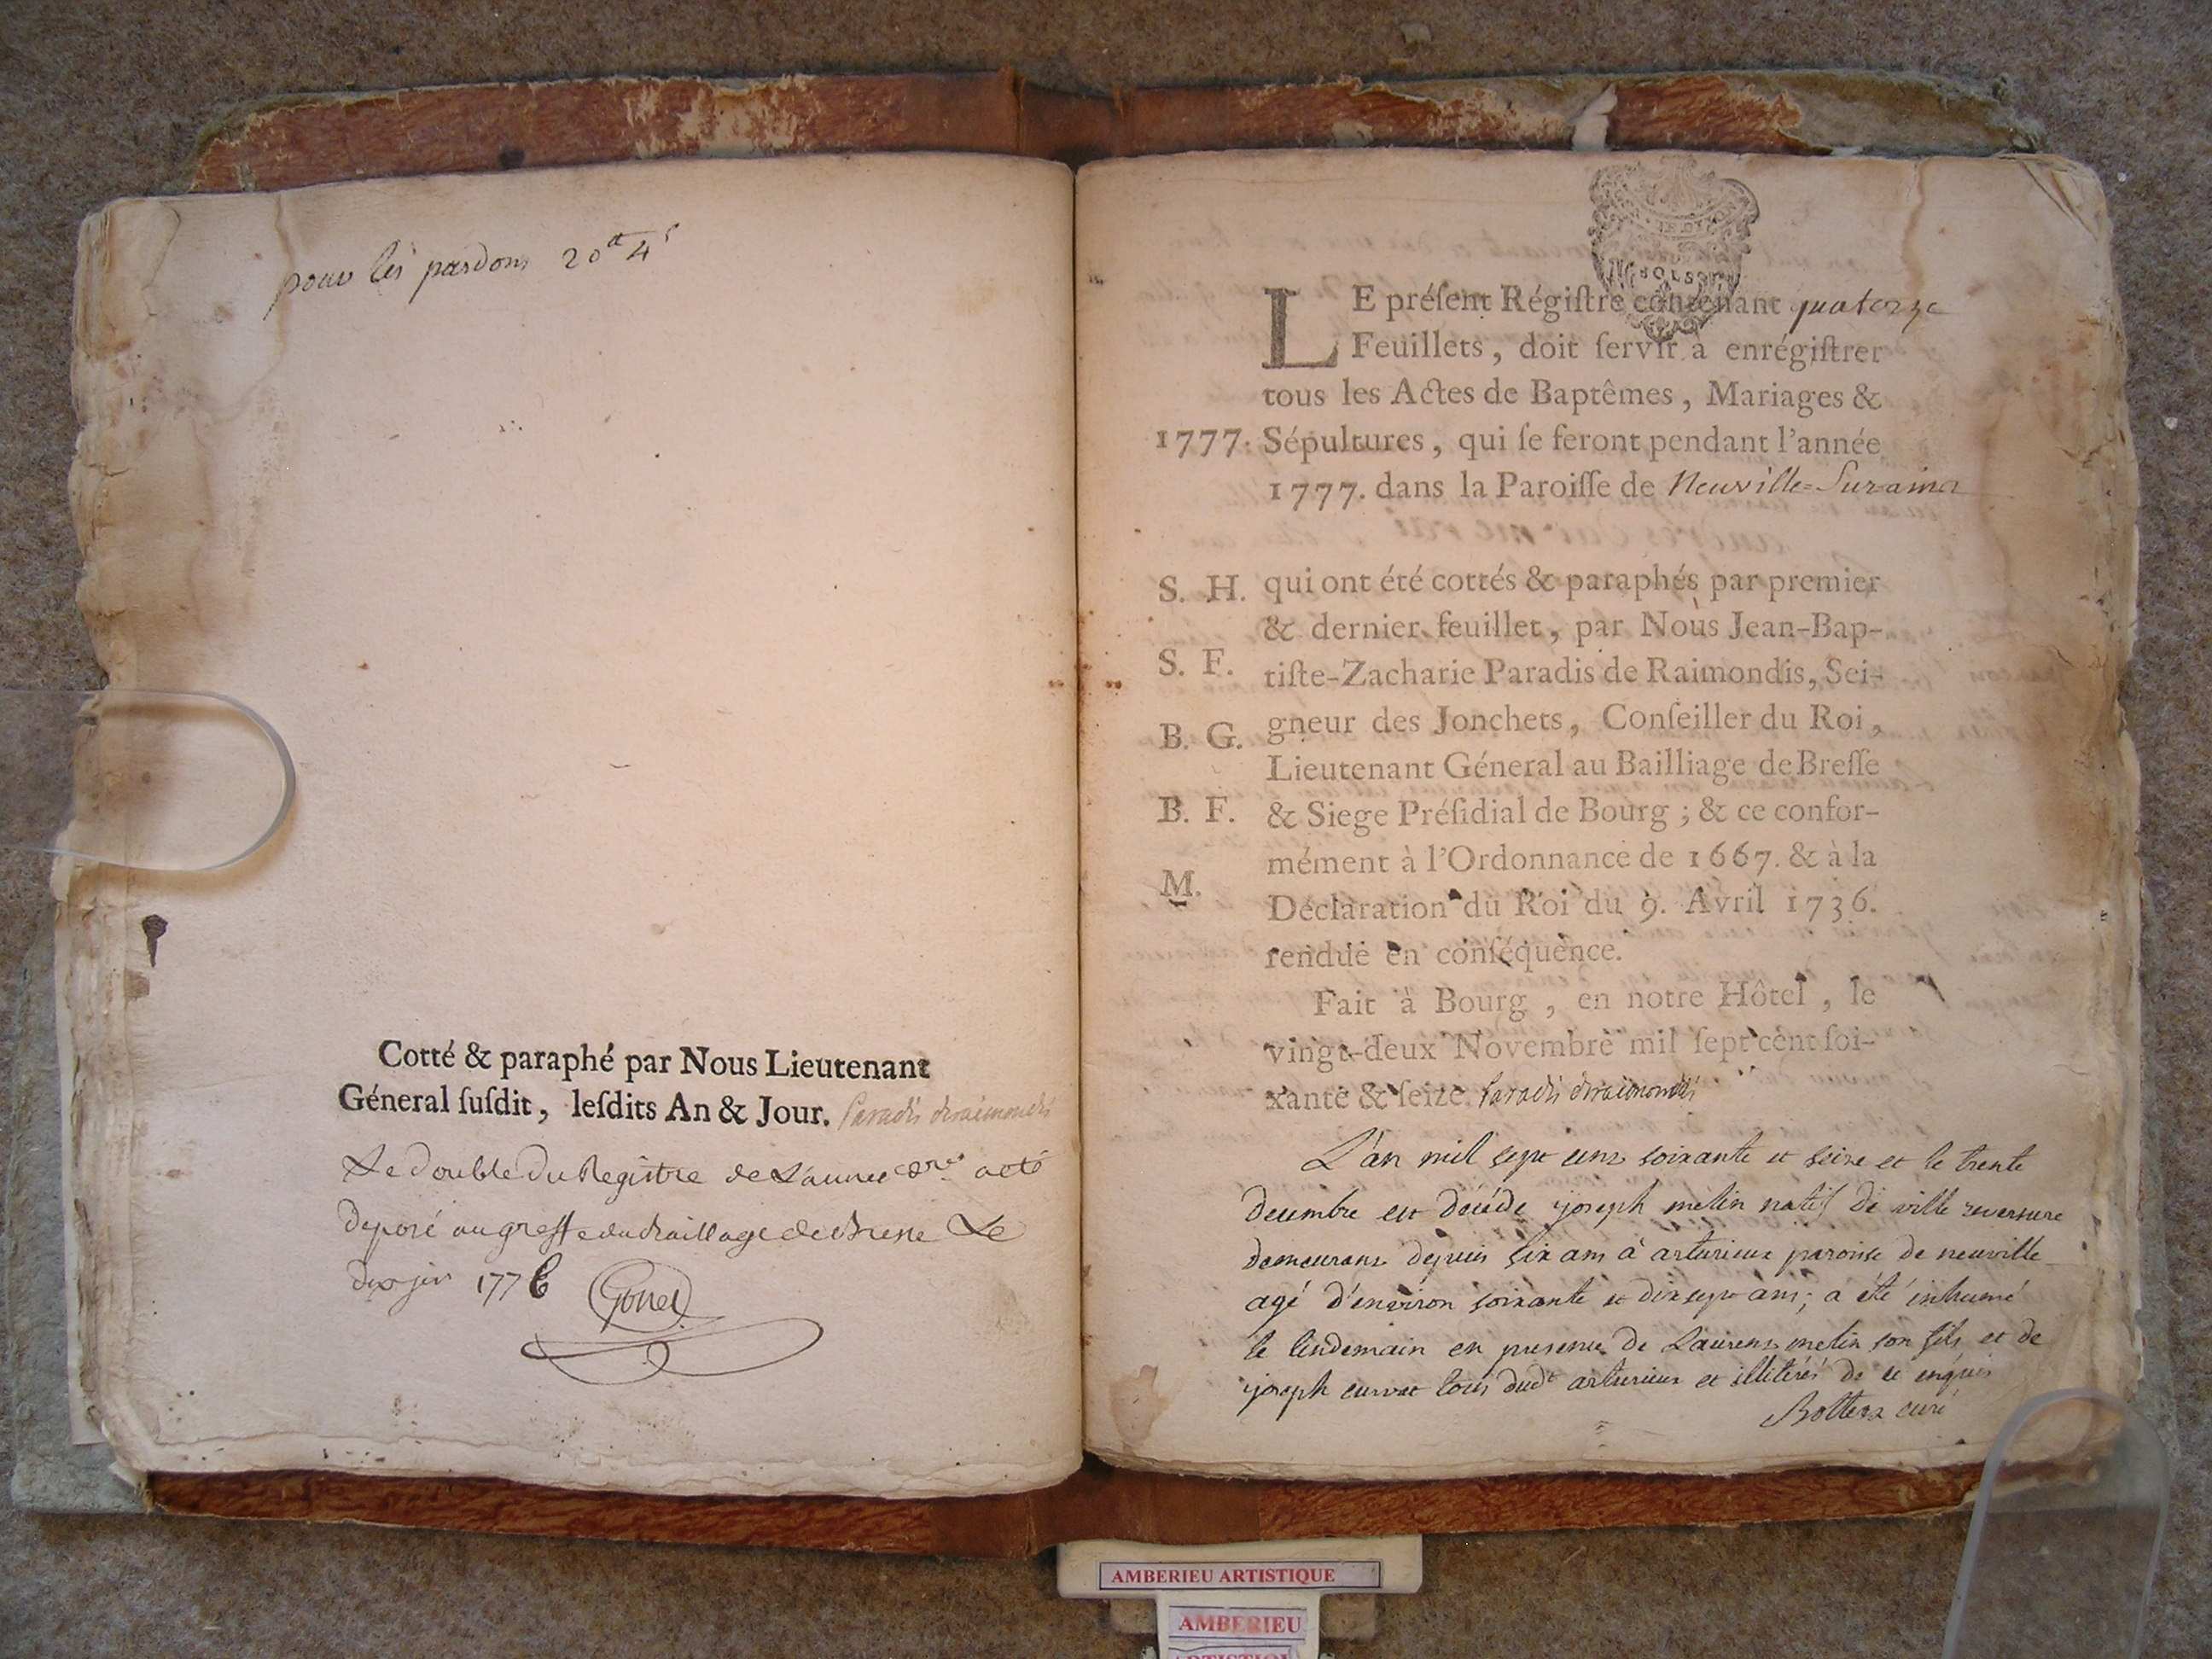 pour les pardons 20 4
Cotté & paraphé par Nous Lieutenant
Géneral ſuſdit, leſdits An & Jour. Paradis deraimondis
Le double du Registre de L'année a été
deposé au greffe du Bailliage de Bresse Le
dix jer 1776 Gonet
LE préſent Régiſtre contenant quatorze
Feuillets, doit ſervir à enrégiſtrer
tous les Actes de Baptêmes, Mariages &
1777. Sépultures, qui ſe feront pendant l'année
1777. dans la Paroiſſe de Neuville=Sur=ainz
S. H. qui ont été cottés & paraphés par premier
& dernier feuillet, par Nous Jean-Bap-
S. F. tiſte-Zacharie Paradis de Raimondis, Sei-
B. G. gneur des Jonchets, Conſeiller du Roi,
Lieutenant Géneral au Bailliage de Breſſe
B. F. & Siege Préſidial de Bourg ; & ce confor-
mément à l'Ordonnance de 1667. & à la
M. Déclaration du Roi du 9. Avril 1736.
rendue en conſéquence.
Fait à Bourg, en notre Hôtel, le
vingt-deux Novembre mil ſept cent ſoi-
xante & ſeize. Paradis deraimondis
L'an mil sept cens soixante et seize et le trente
decembre est décéde joseph melin natif de ville reversure
demeurans depuis six ans à arturieux paroisse de neuville
agé d'environ soixante et dix sept ans ; a été inhumé
le lendemain en presence de Laurens melin son fils et de
joseph curvat tous dudt arturieux et illitérés de ce enquis
Bottex curé
AMBERIEU ARTISTIQUE
AMBERIEU
ARTISTIQUE